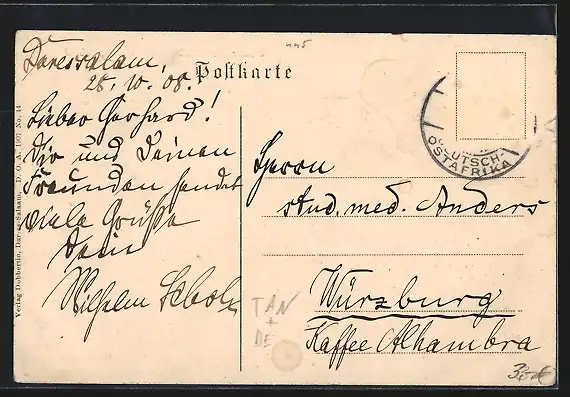 445
Postkarte
Daressalam,
28. 10. 08.
Lieber Gerhard!
Dir und Deinen
Freunden sendet
viele Grüße
Dein
Wilhelm
Herrn
stud. med. Anders
Würzburg
Kaffee Alhambra
DEUTSCH-
OSTAFRIKA
TAN
+
DE
Verlag Dobbertin, Dar-es-Salaam, D. O. A. 1907 No. 14